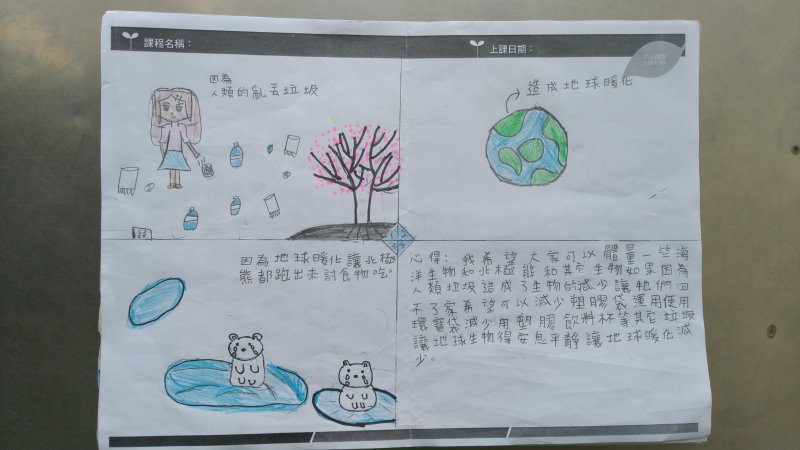 課程名稱：
上課日期：
因為
人類的亂丟垃圾
造成地球暖化
1 2
3 4
因為地球暖化讓北極
熊都跑出來討食物吃。
心得：我希望大家可以體量一些海
洋生物和北極熊和其它生物如果因為
人類垃圾造成了生物的減少讓牠們回
不了家希望可以減少塑膠袋運用使用
環寶袋減少用塑膠飲料杯等其它垃圾
讓地球生物得安息平靜讓地球暖化減
少。